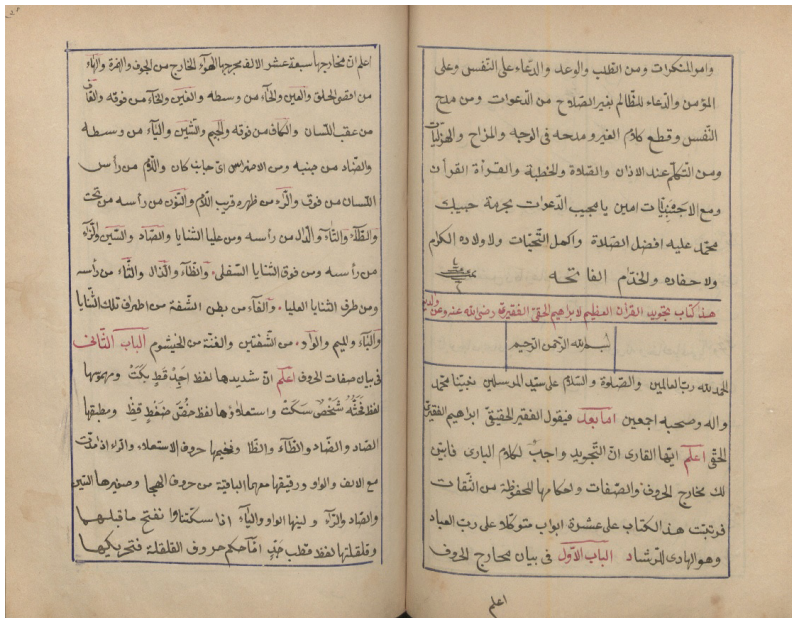 وامر المنكرات ومن القلب والوعد والدعاء على النفس وعلى
المؤمن والدعاء للظالم بغير الصلاح من الدعوات ومن مدح
النفس وقطع كلام الغير ومدحه فى الوجه والمزاح والهزليات
ومن التكلم عند الاذان والصلاة والخطبة والقرأة القرآن
ومع الاجنبيات امين يا مجيب الدعوات بحرمة حبيبك
محمد عليه افضل الصلاة واكمل التحيات ولاولاده الكرام
ولاحفاده والخدام الفاتحه
هذ كتاب تجويد القرآن العظيم لابراهيم الحقى الفقيرى رضى الله عنه وعن والديه
بسم الله الرحمن الرحيم
الحمد لله رب العالمين والصلوة والسلام على سيد المرسلين نبينا محمد
واله وصحبه اجمعين اما بعد فيقول الفقير الحقيقى ابراهيم الفقيرى
الحقى اعلم ايها القارى ان التجويد واجب لكلام البارى فابين
لك مخارج الحروف والصفات واحكامها المحفوظة من الثقات
فرتبت هذ الكتاب على عشرة ابواب متوكلا على رب العباد
وهو الهادى للرشاد الباب الاول فى بيان مخارج الحروف
اعلم
اعلم ان مخارجها سبعة عشر الالف مخرجها الهواء الخارج من الجوف والهمزة والهاء
من اقصى الحلق والعين والحاء من وسطه والغين والخاء من فوقه والقاف
من عقب اللسان والكاف من فوقه والجيم والشين والياء من وسطه
والضاد من جنبه ومن الاضراس اى جانب كان واللام من رأس
اللسان من فوق والراء من ظهره قريب اللام والنون من رأسه من تحت
والطاء والتاء والدال من رأسه ومن عليا الثنايا والصاد والسين والزاء
من رأسه ومن فوق الثنايا السفلى والظاء والذال والثاء من رأسه
ومن طرف الثنايا العليا والفاء من بطن الشفة من اطراف تلك الثنايا
والباء والميم والواو من الشفتين والغنة من الخيشوم الباب الثانى
فى بيان صفات الحروف اعلم ان شديدها لفظ اجد قط بكت ومهموسها
لفظ فحثه شخص سكت واستعلاؤها لفظ خص ضغط قظ ومطبقها
الصاد والضاد والطاء والظا وتفخيمها حروف الاستعلاء والراء اذا مدت
مع الالف والواو ورقيقها معها الباقية من حروف الهجا وصفيرها السين
والصاد والزاء و لينها الواو والياء اذا سكنتا وانفتح ما قبلهما
وقلقلتها لفظ قطب جد اما حكم حروف القلقلة فتحريكها